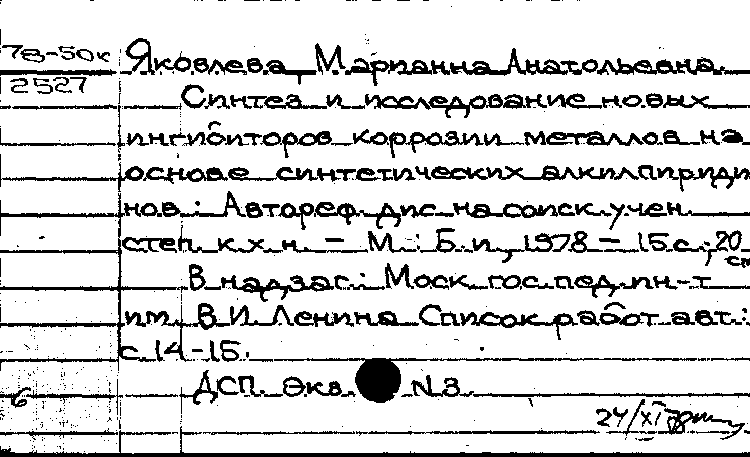 78-50к
2527
Яковлева, Марианна Анатольевна.
Синтез и исследование новых
ингибиторов коррозии металлов на
основе синтетических алкилпириди
нов: Автореф. дис. на соиск. учен.
степ. к.х.н. - М.: Б.и., 1978 - 15с.; 20 см
В надзаг.: Моск. гос. пед. ин-т
им. В.И. Ленина. Список работ авт.:
с. 14-15.
ДСП. Экз. N3.
6
24/XI